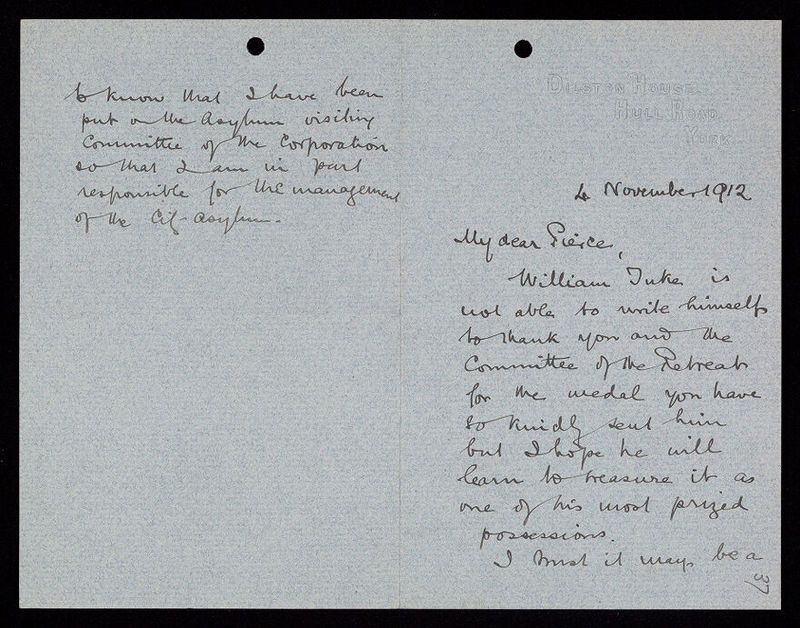 DILSTON HOUSE,
HULL ROAD,
YORK.
4 November 1912
My dear Pierce,
William Tuke is
not able to write himself
to thank you and the
Committee of the Retreat
for the medal you have
so kindly sent him
but I hope he will
learn to treasure it as
one of his most prized
possessions.
I trust it may be a
37
to know that I have been
put on the Asylum visiting
Committee of the Corporation
so that I am in part
responsible for the management
of the City Asylum.